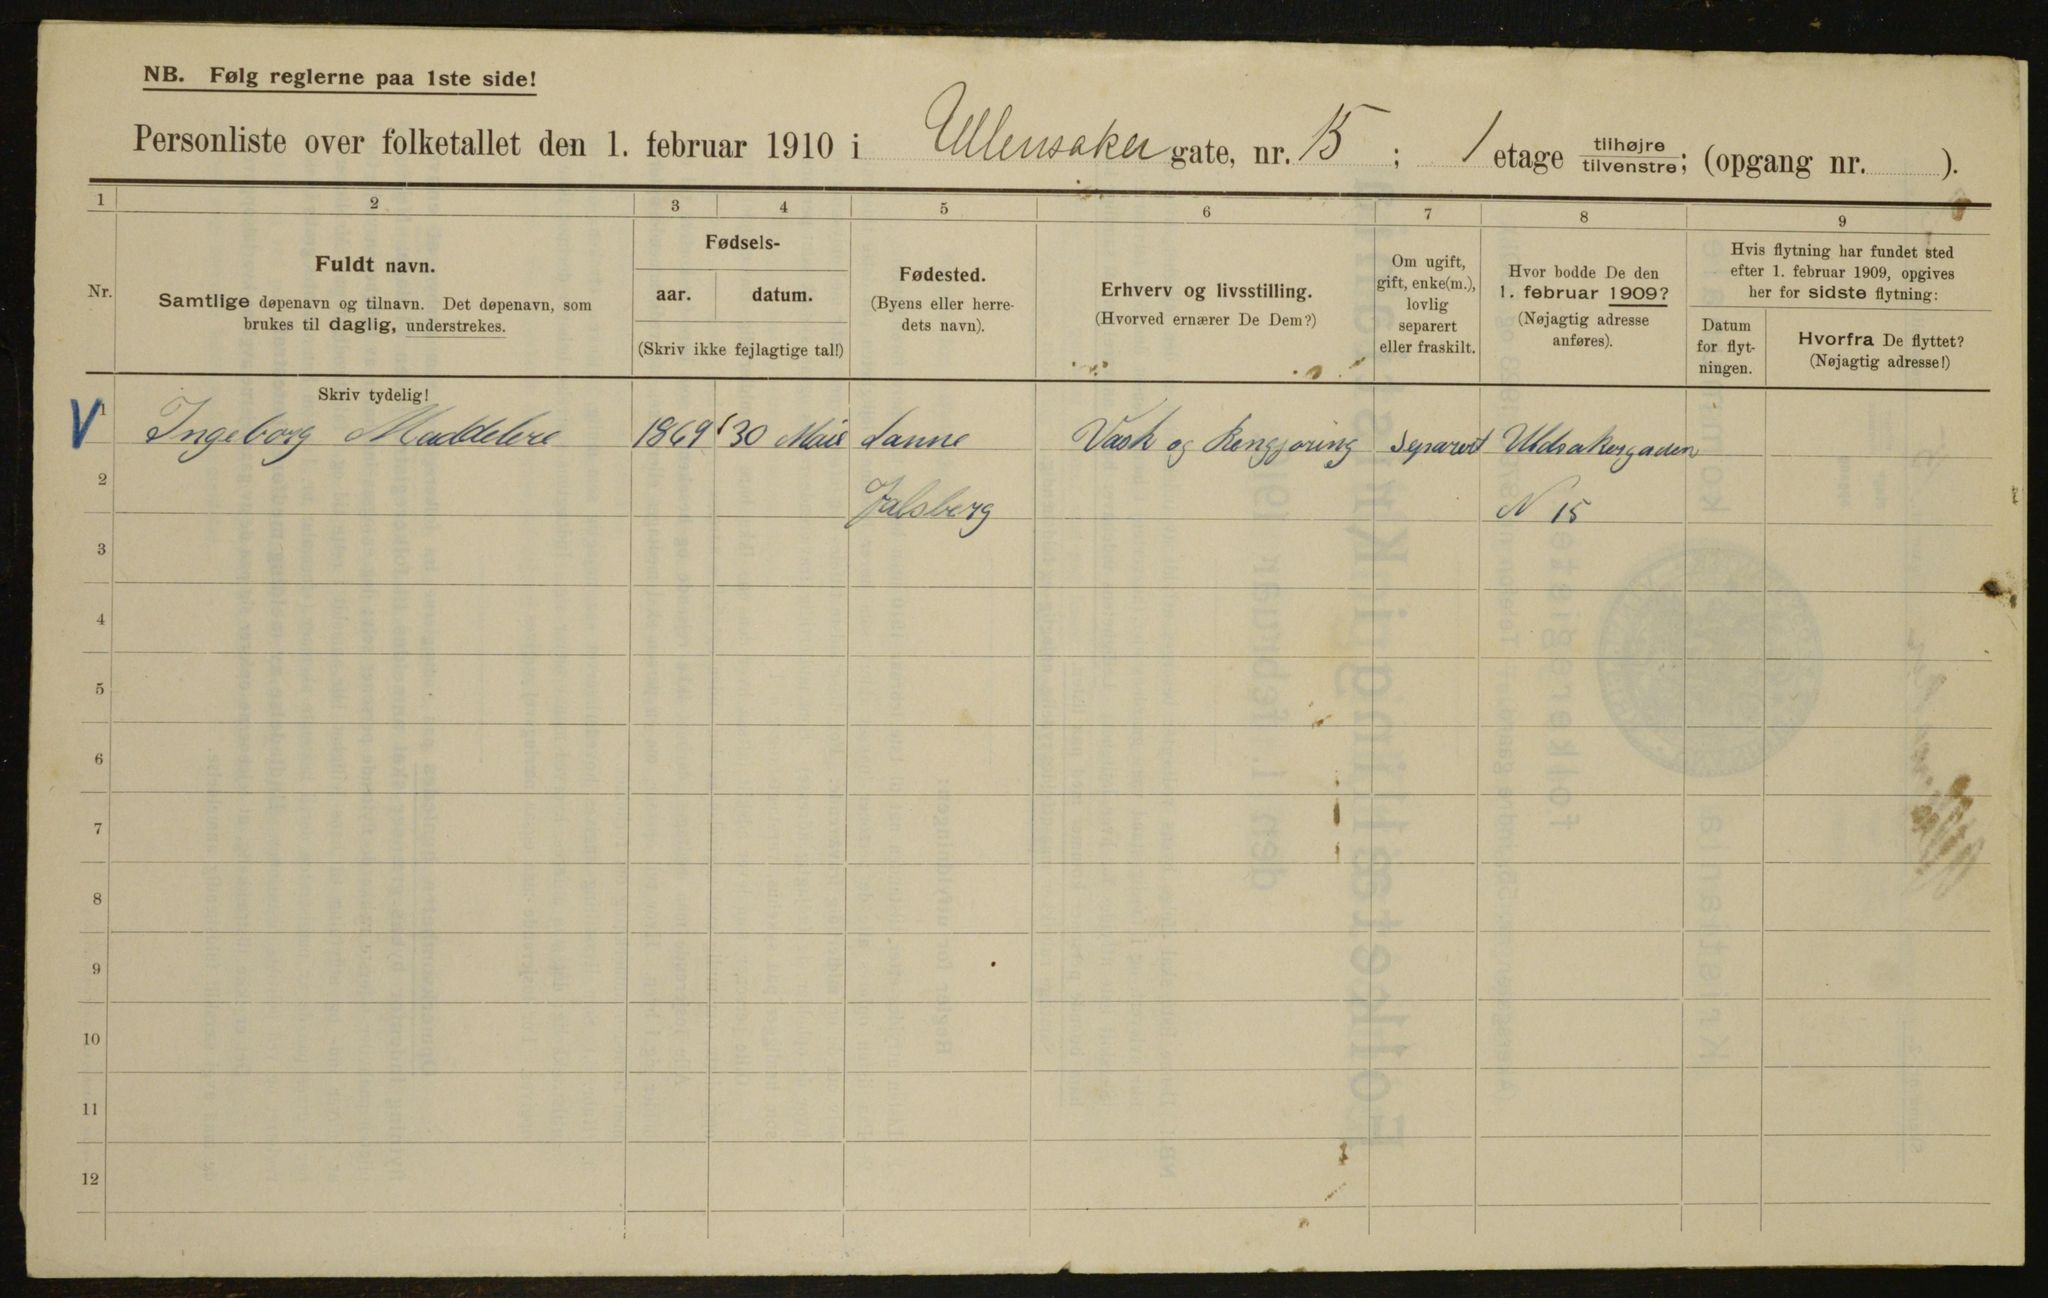 NB. Følg reglerne paa 1ste side!
Personliste over folketallet den 1. februar 1910 i Ullensaker gate, nr. 15 ; 1 etage tilhøjre/tilvenstre; (opgang nr. ).
1 2 3 4 5 6 7 8 9
Nr.
Fuldt navn.
Samtlige døpenavn og tilnavn. Det døpenavn, som
brukes til daglig, understrekes.
Fødsels-
aar. datum.
(Skriv ikke fejlagtige tal!)
Fødested.
(Byens eller herre-
dets navn).
Erhverv og livsstilling.
(Hvorved ernærer De Dem?)
Om ugift,
gift, enke(m.),
lovlig
separert
eller fraskilt.
Hvor bodde De den
1. februar 1909?
(Nøjagtig adresse
anføres).
Hvis flytning har fundet sted
efter 1. februar 1909, opgives
her for sidste flytning:
Datum
for flyt-
ningen.
Hvorfra De flyttet?
(Nøjagtig adresse!)
Skriv tydelig!
V 1 Ingeborg 1869 30 Mai Vask og Rengjøring separert
2 N 15
3
4
5
6
7
8
9
10
11
12